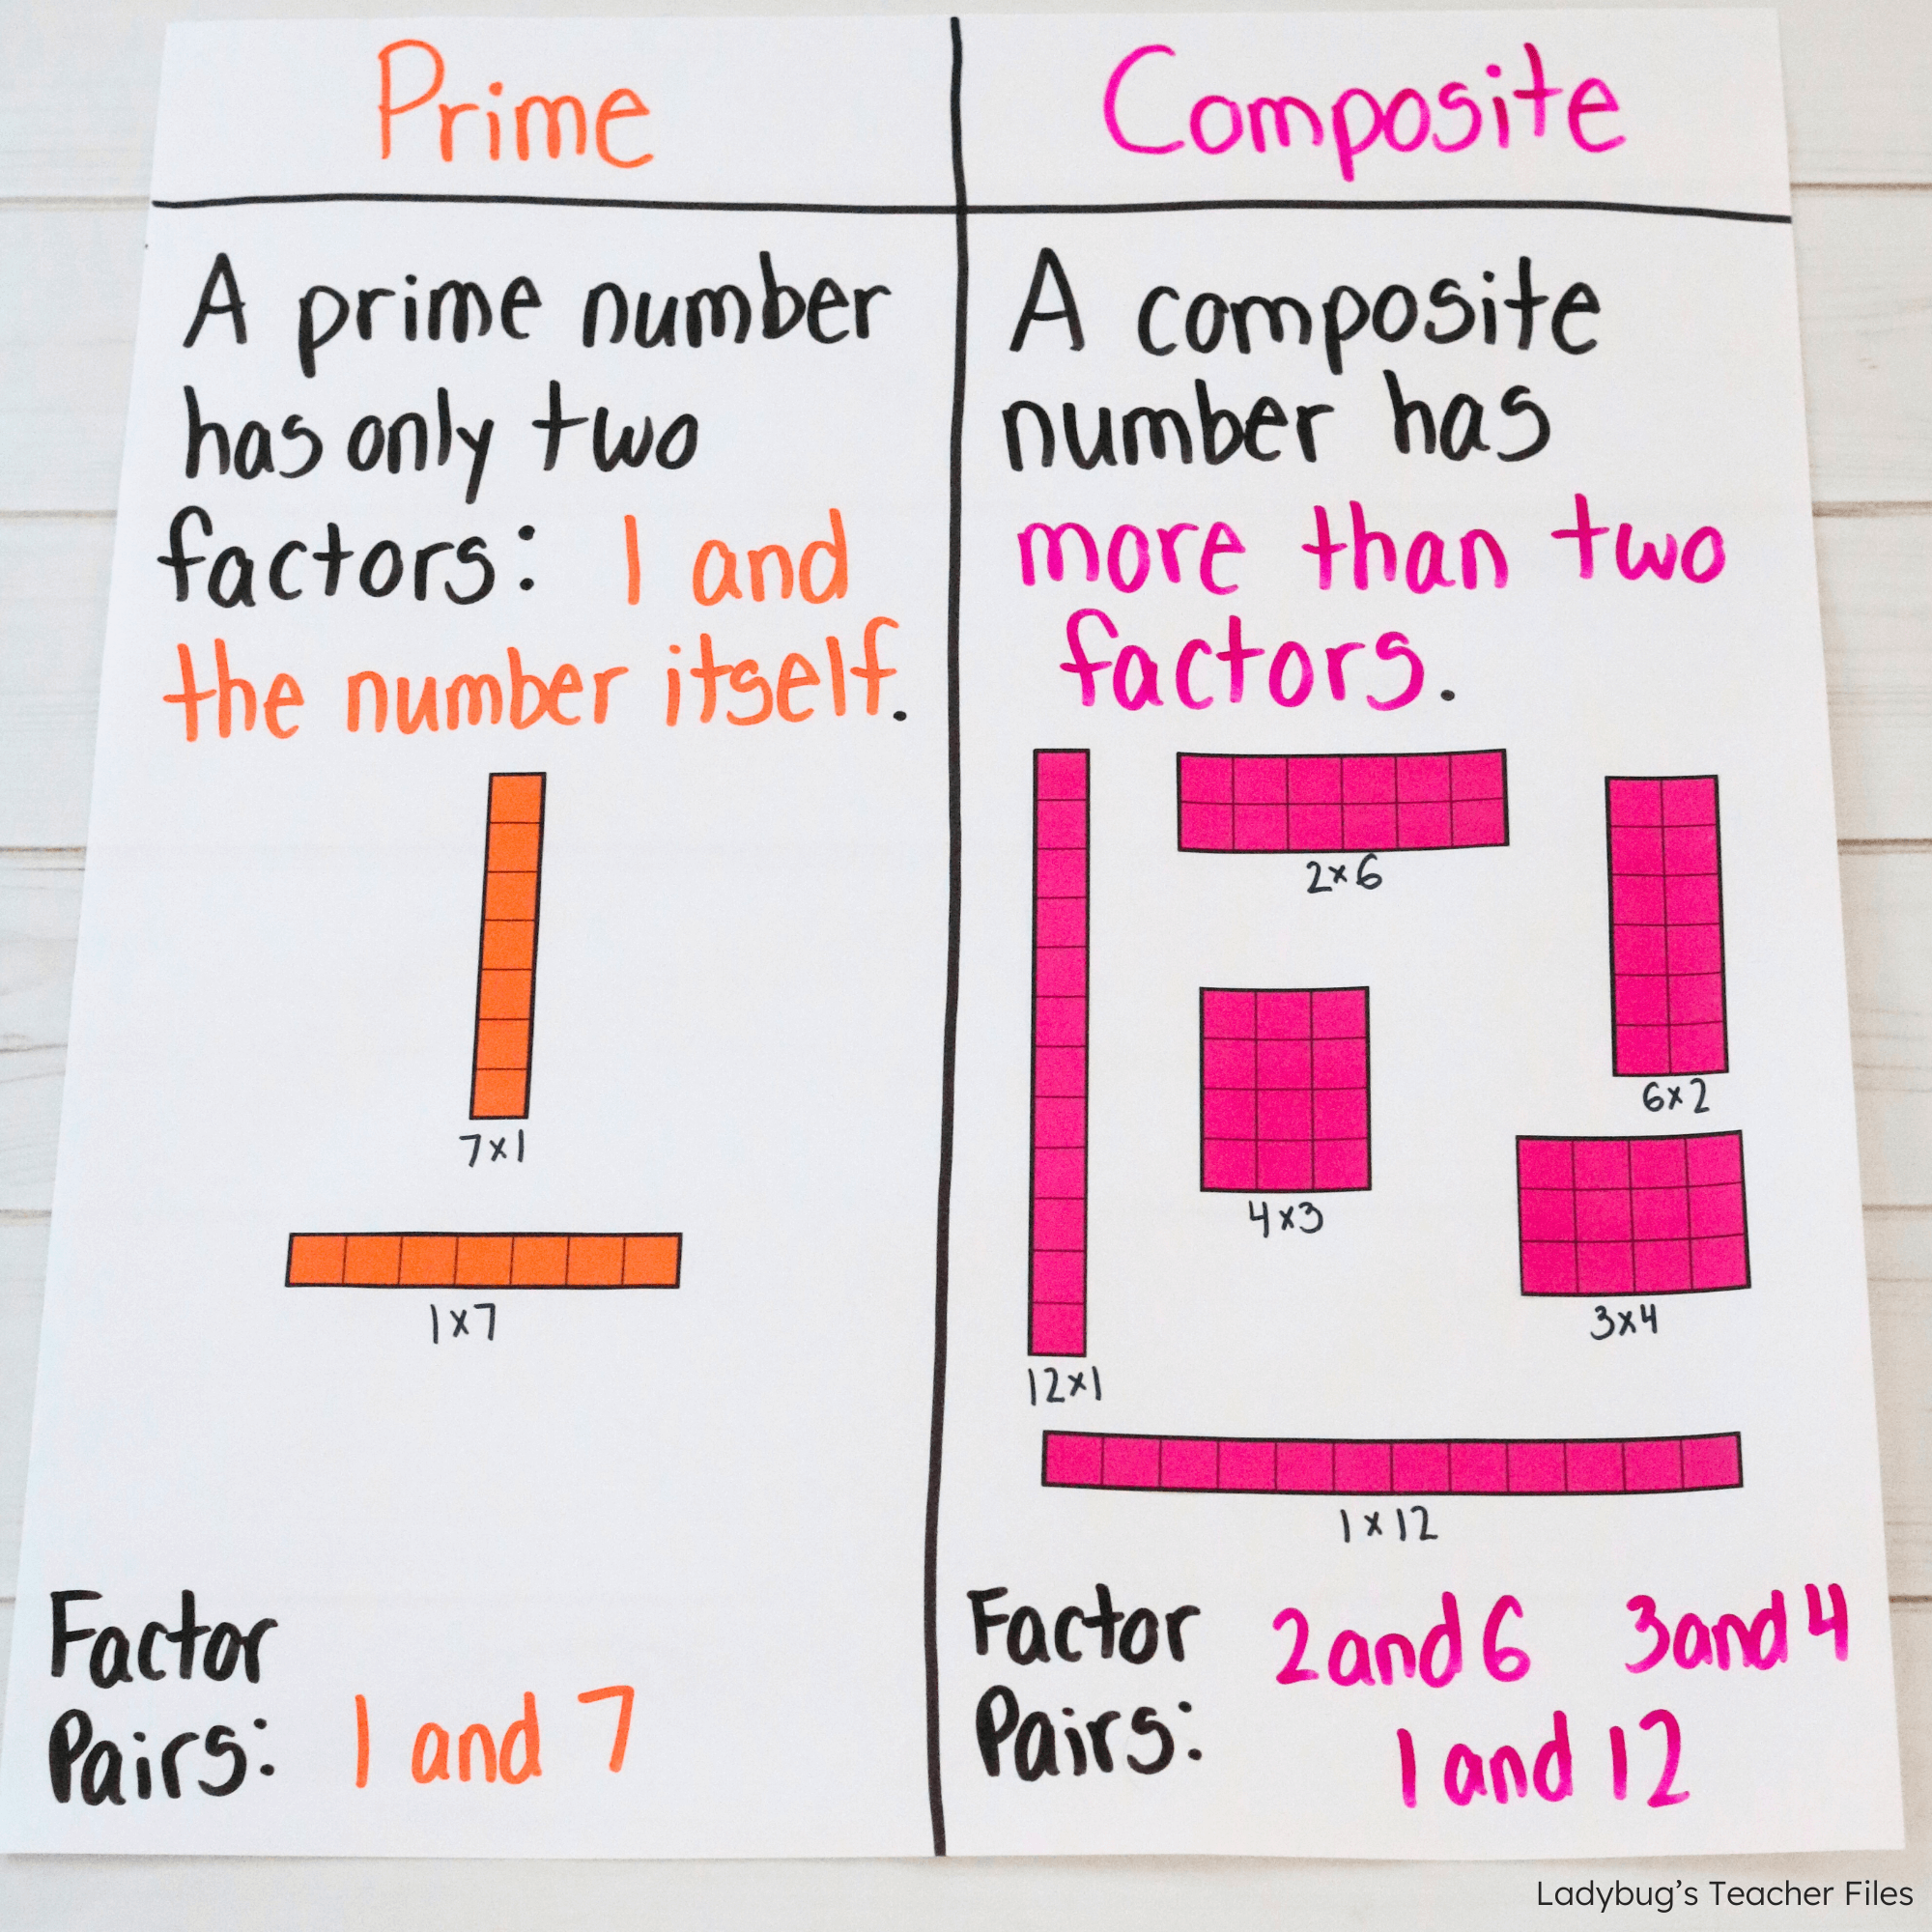 Prime
A prime number
has only two
factors: 1 and
the number itself.
7x1
1x7
Factor
Pairs: 1 and 7
Composite
A composite
number has
more than two
factors.
2x6
6x2
4x3
3x4
12x1
1x12
Factor 2 and 6 3 and 4
Pairs: 1 and 12
Ladybug's Teacher Files